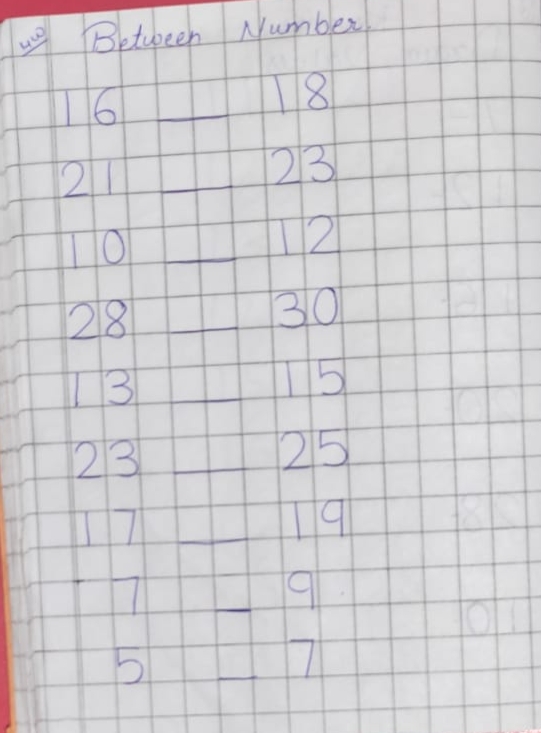 HW Between Number.
16 __ 18
21 __ 23
10 __ 12
28 __ 30
13 __ 15
23 __ 25
17 __ 19
7 _ 9
5 _ 7